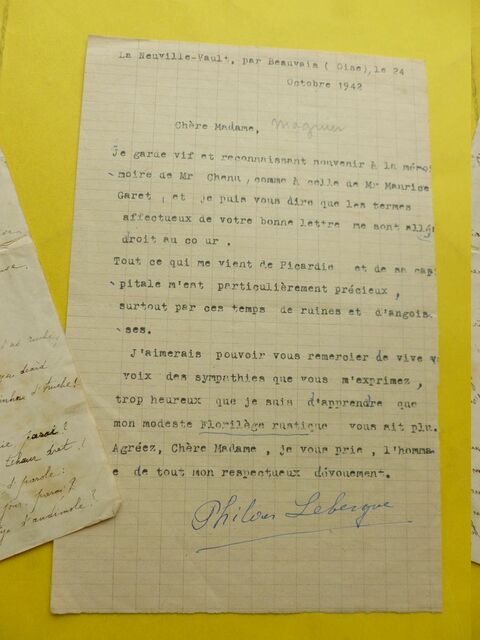 La Neuville-Vault, par Beauvais ( Oise), le 24
Octobre 1942
Chère Madame, Magnier
Je garde vif et reconnaissant souvenir à la mémoi
moire de Mr Chanu, comme à celle de Mr Maurice
Garet , et je puis vous dire que les termes
affectueux de votre bonne lettre me sont allés
droit au cœur .
Tout ce qui me vient de Picardie et de sa cap
pitale m'est particulièrement précieux ,
surtout par ces temps de ruines et d'angois
ses.
J'aimerais pouvoir vous remercier de vive v
voix des sympathies que vous m'exprimez ,
trop heureux que je suis d'apprendre que
mon modeste Florilège rustique vous ait plu.
Agréez, Chère Madame , je vous prie , l'homma
e de tout mon respectueux dévouement.
Philéas Lebesgue
parai ?
d'parole :
jour, parai ?
d'audimole ?